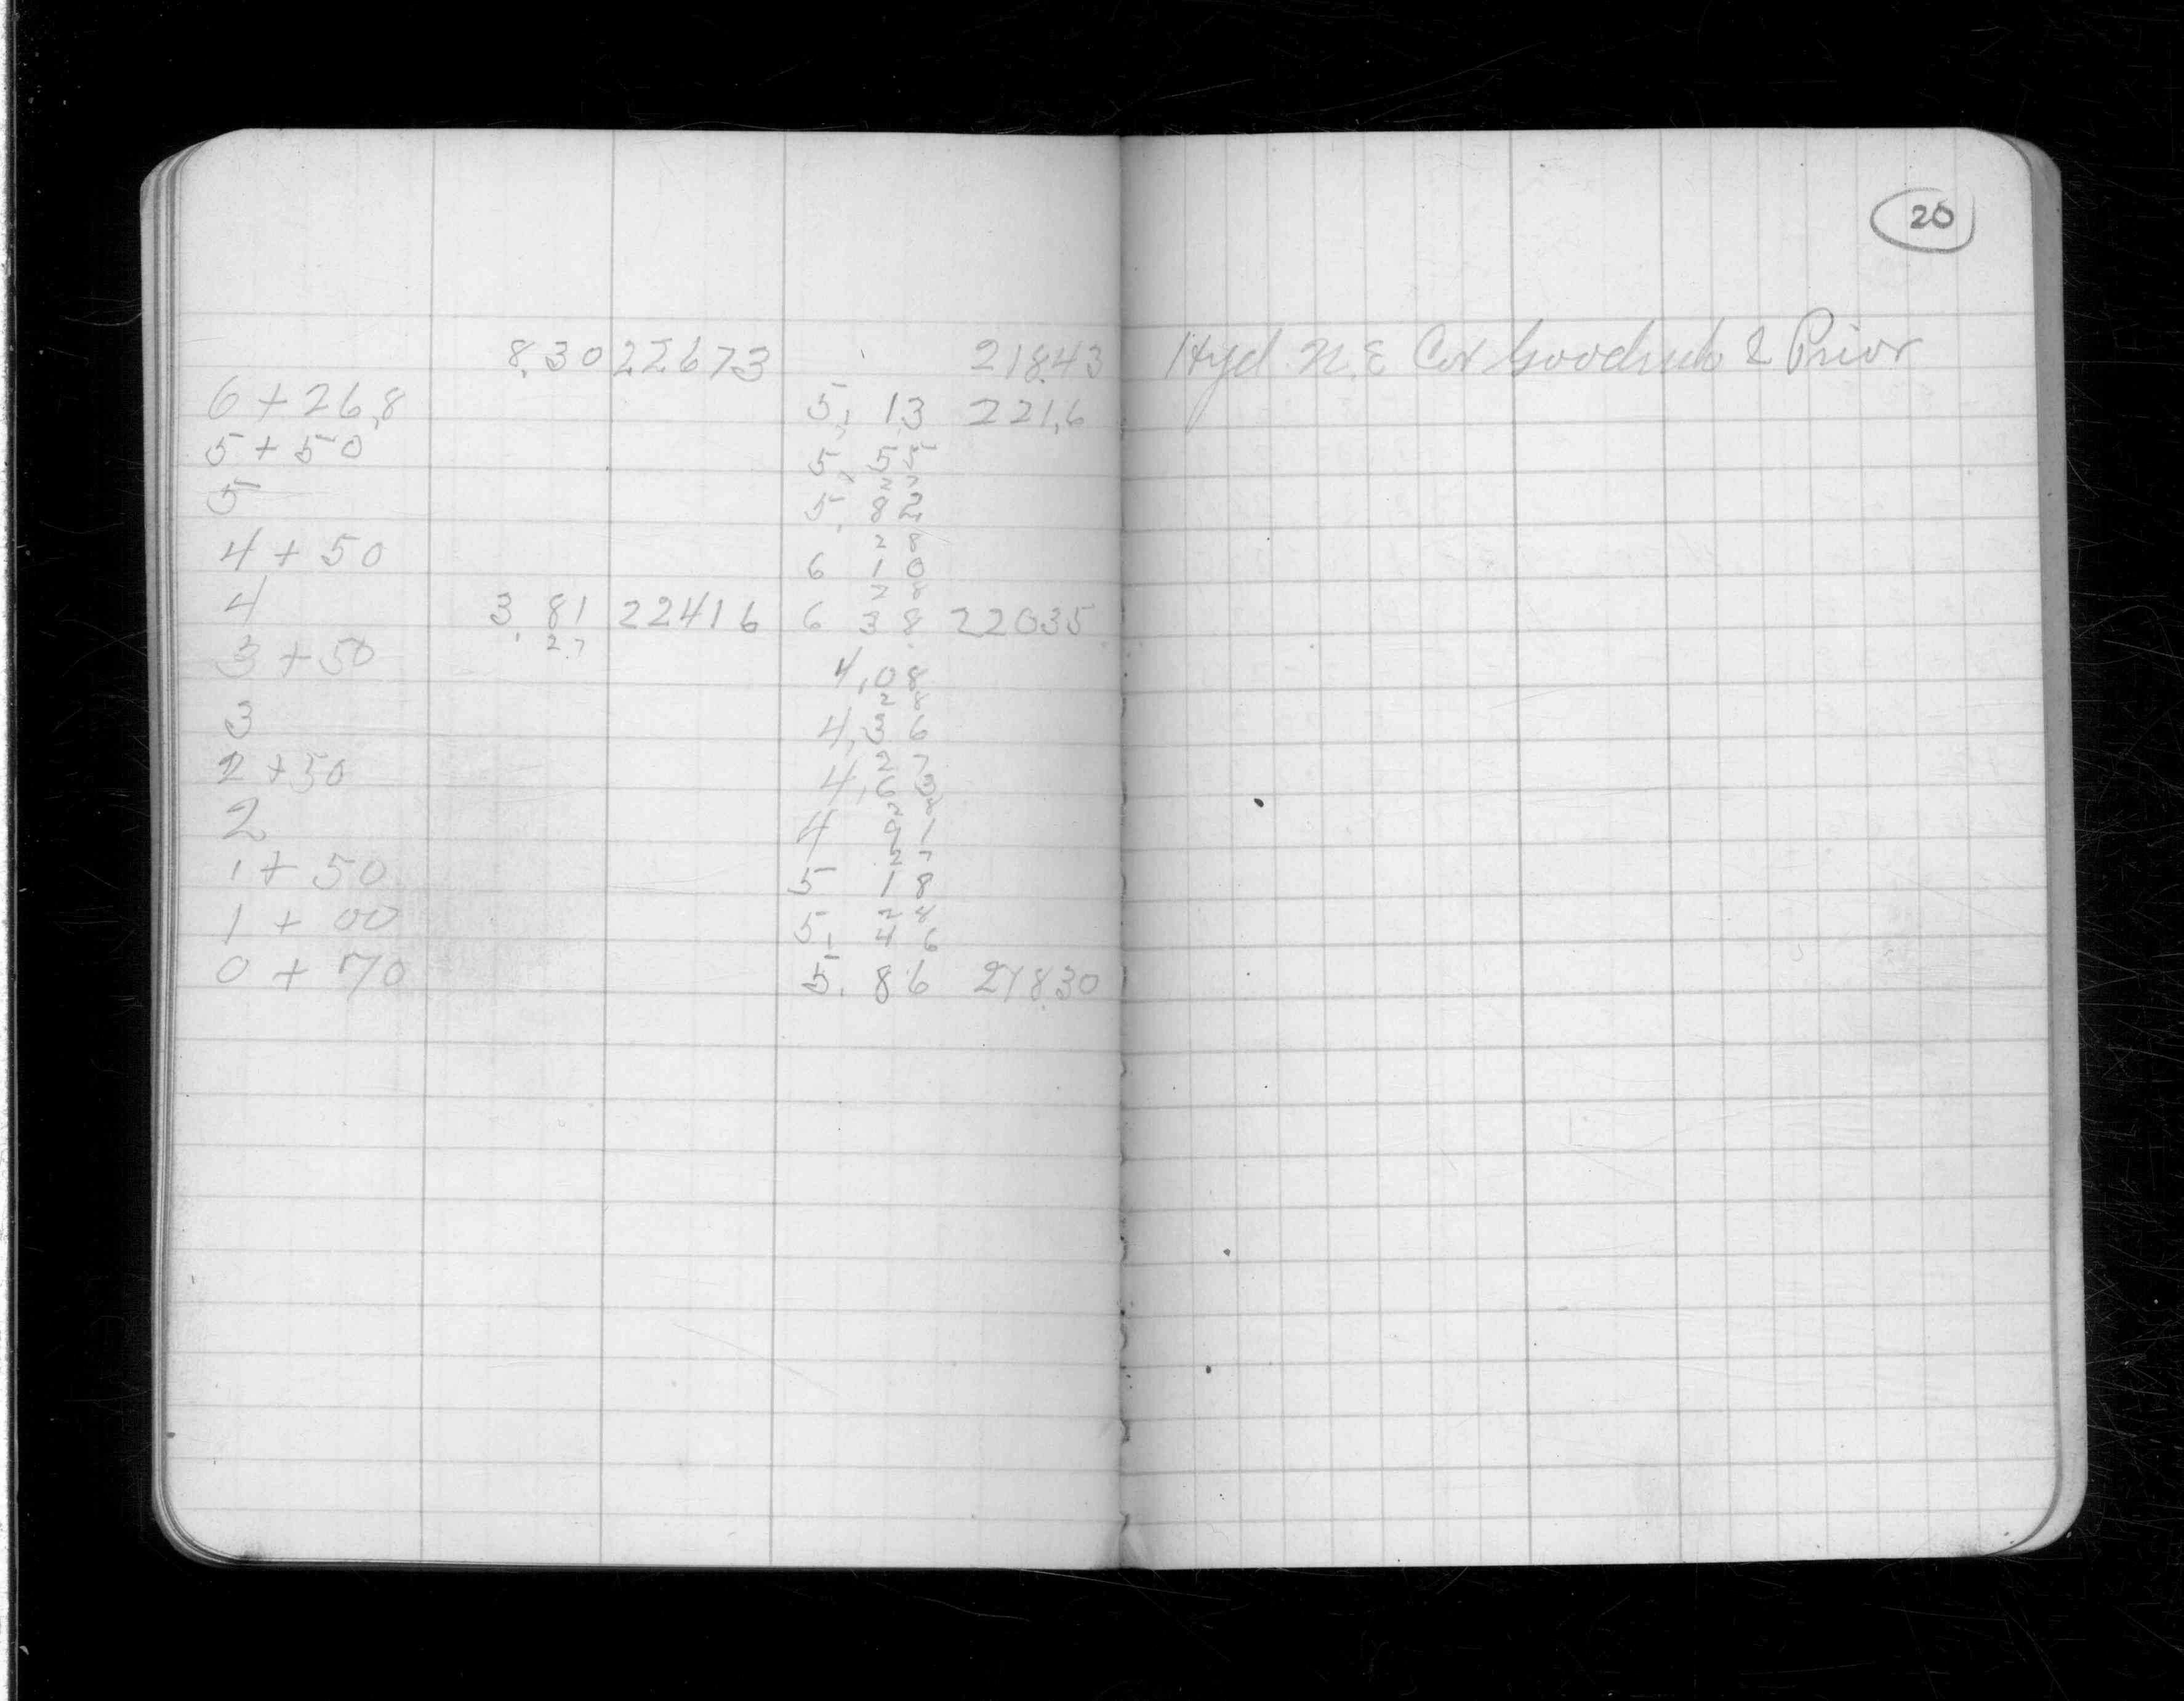 20
8.30 22673 218.43 Hyd. N.E Cor Goodrich & Prior
6 + 26.8 5. 13 221.6
5 + 50 5. 55
27
5 5. 82
28
4 + 50 6 10
28
4 3. 81 22416 6 38 22035
27
3 + 50 4.08
28
3 4.36
27
2 + 50 4.63
28
2 4 91
27
1 + 50 5 18
28
1 + 00 5. 46
0 + 70 5. 86 218.30